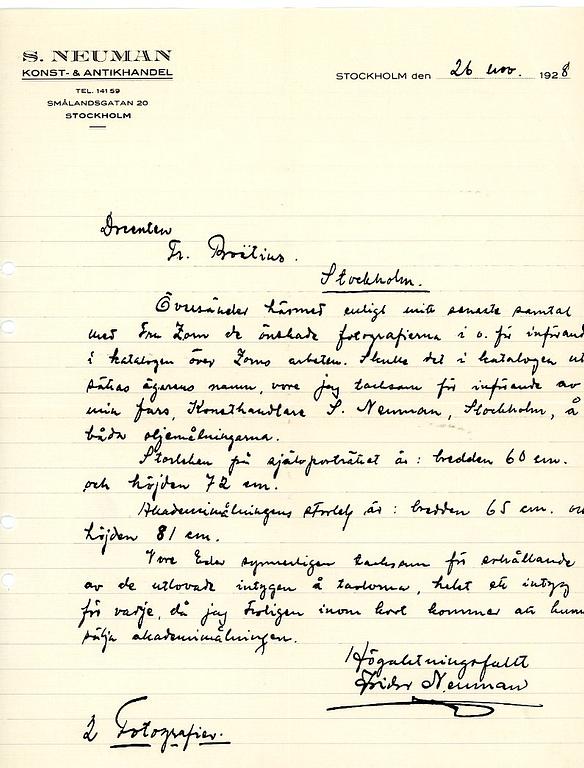 S. NEUMAN
KONST- & ANTIKHANDEL
TEL. 141 59
SMÅLANDSGATAN 20
STOCKHOLM
STOCKHOLM den 26 nov. 1928
Docenten
Fr. Broëlius.
Stockholm.
Översänder härmed enligt mitt senaste samtal
med Fru Zorn de önskade fotografierna i o. för införand
i katalogen över Zorns arbeten. Skulle det i katalogen ut
sättas ägarens namn, vore jag tacksam för införande av
min fars, Konsthandlare S. Neuman, Stockholm, å
båda oljemålningarna.
Storleken på självporträttet är: bredden 60 cm.
och höjden 72 cm.
Akademimålningens storlek är: bredden 65 cm. oc
höjden 81 cm.
Vore Eder synnerligen tacksam för erhållande
av de utlovade intygen å tavlorna, helst ett intyg
för varje, då jag troligen inom kort kommer att kunn
sälja akademimålningen.
Högaktningsfullt
Neuman
2 Fotografier.